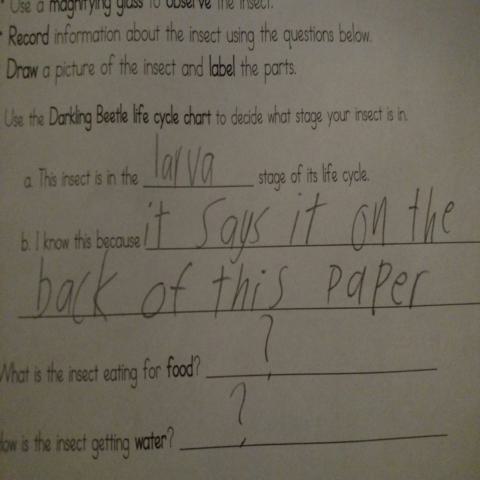 Use a magnifying glass to observe the insect.
Record information about the insect using the questions below.
Draw a picture of the insect and label the parts.
Use the Darkling Beetle life cycle chart to decide what stage your insect is in.
a. This insect is in the larva stage of its life cycle.
b. I know this because it says it on the
back of this paper
What is the insect eating for food? ?
How is the insect getting water? ?